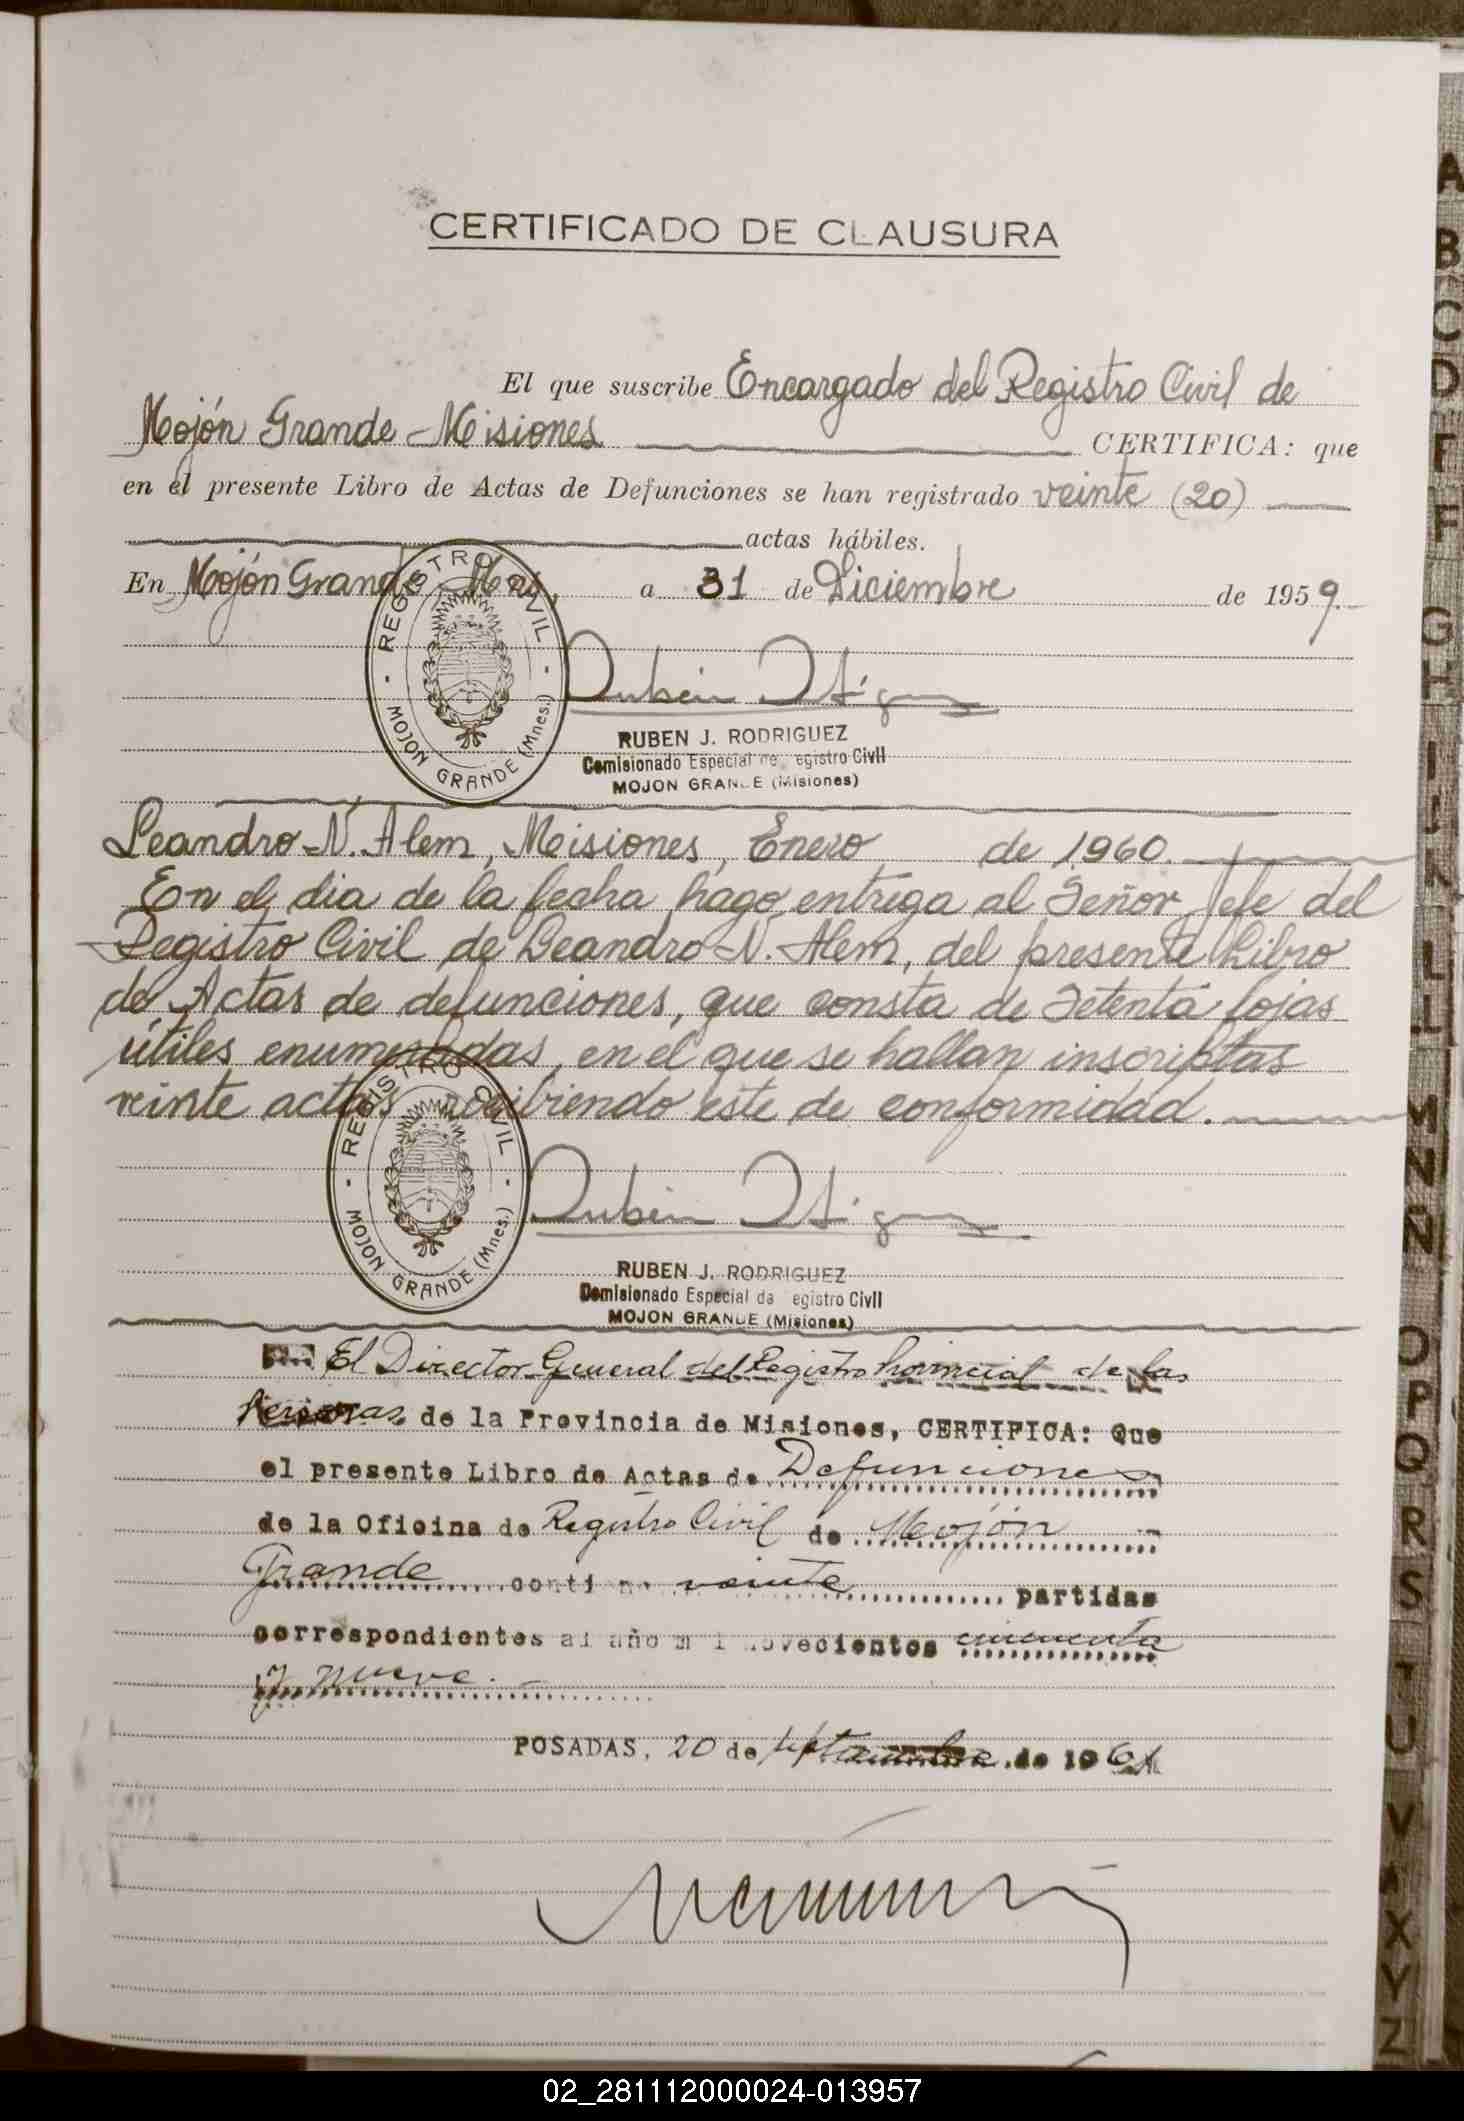 CERTIFICADO DE CLAUSURA
El que suscribe Encargado del Registro Civil de
Mojón Grande Misiones CERTIFICA: que
en el presente Libro de Actas de Defunciones se han registrado veinte (20)
actas hábiles.
En Mojón Grande Mnes, a 31 de Diciembre de 1959.
REGISTRO CIVIL
MOJON GRANDE (Mnes.)
RUBEN J. RODRIGUEZ
Comisionado Especial de egistro Civil
MOJON GRANDE (Misiones)
Leandro N. Alem, Misiones, Enero de 1960.
En el dia de la fecha hago entrega al Señor Jefe del
Registro Civil de Leandro N. Alem, del presente Libro
de Actas de defunciones, que consta de Setenta fojas
útiles enumeradas, en el que se hallan inscriptas
veinte actas recibiendo este de conformidad.
REGISTRO CIVIL
MOJON GRANDE (Mnes.)
RUBEN J. RODRIGUEZ
Comisionado Especial de egistro Civil
MOJON GRANDE (Misiones)
El Director General del Registro Provincial de las
Personas de la Provincia de Misiones, CERTIFICA: Que
el presente Libro de Actas de Defunciones
de la Oficina de Registro Civil de Mojón
Grande contiene veinte partidas
correspondientes al año mil novecientos cincuenta
y nueve.-
POSADAS, 20 de septiembre de 1961
A
B
C
D
E
F
G
H
I
J
K
L
LL
M
N
Ñ
O
P
Q
R
S
T
U
V
X
Y
Z
02_281112000024-013957